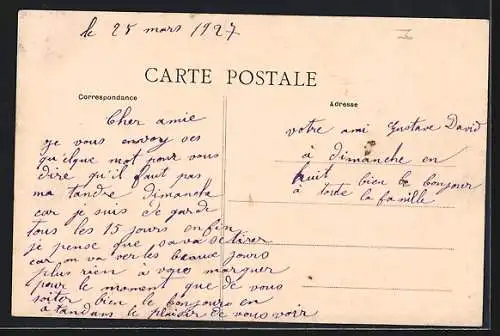 le 28 mars 1927
CARTE POSTALE
Correspondance
Adresse
Cher amie
je vous envoy ces
qu'elque mot pour vous
dire qu'il faut pas
ma tandre dimanche
car je suis de garde
tous les 15 jours enfin
je pense que sa va se tirer
car on va vers les beaux jours
plus rien à vous marquer
pour le moment que de vous
soiter bien le bonjour en
atandans le plaisir de vous voir
votre ami Gustave David
à dimanche en
huit bien le bonjour
à toute la famille